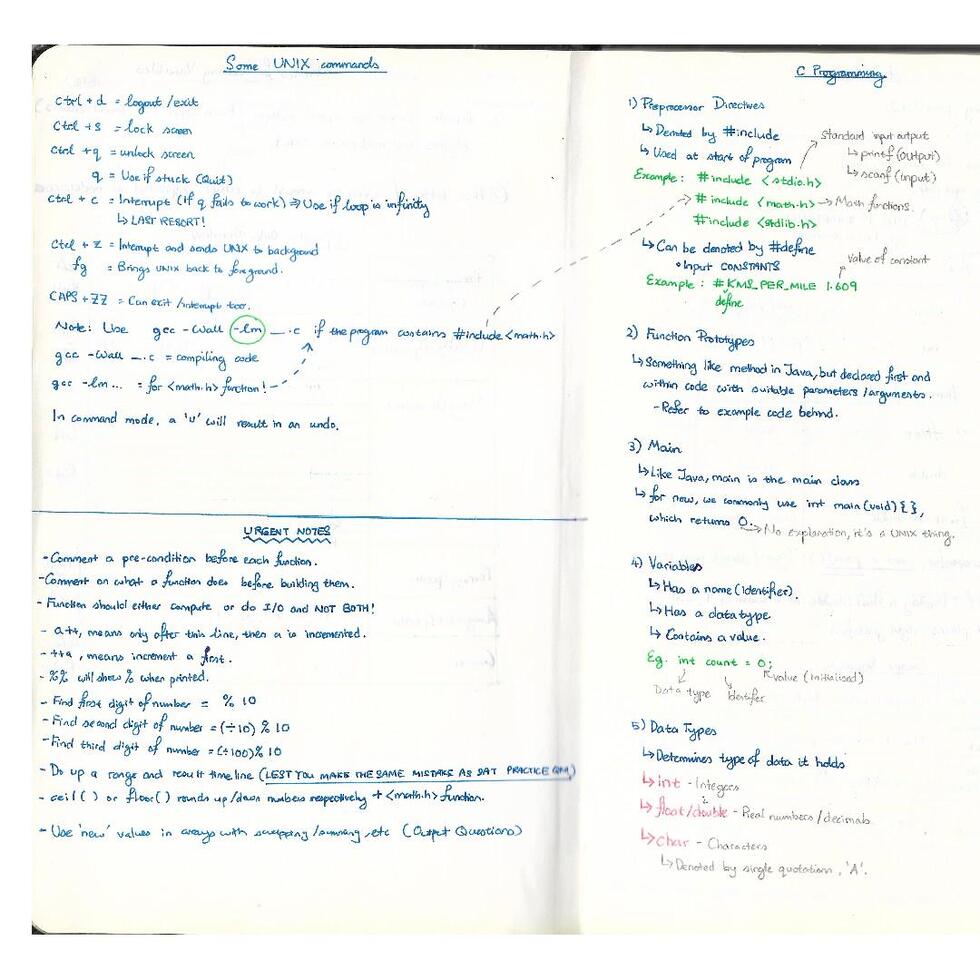 Some UNIX commands
ctrl + d = logout/exit
ctrl + s = lock screen
ctrl + q = unlock screen
q = Use if stuck (Quit)
ctrl + c = Interrupt (If q fails to work) ⇒ Use if loop is infinity
↳ LAST RESORT!
Ctrl + Z = Interrupt and sends UNIX to background
fg = Brings UNIX back to foreground.
CAPS + ZZ = Can exit/interrupt too.
Note: Use gcc -Wall -lm __.c if the program contains #include <math.h>
gcc -Wall __.c = compiling code
gcc -lm... = for <math.h> function!
In command mode, a 'u' will result in an undo.
URGENT NOTES
- Comment a pre-condition before each function.
- Comment on what a function does before building them.
- Function should either compute or do I/O and NOT BOTH!
- a++, means only after this line, then a is incremented.
- ++a, means increment a first.
- %% will show % when printed.
- Find first digit of number = % 10
- Find second digit of number = (÷10) % 10
- Find third digit of number = (÷100) % 10
- Do up a range and result timeline (LEST YOU MAKE THE SAME MISTAKE AS SAT PRACTICE QN4)
- ceil() or floor() rounds up/down numbers respectively + <math.h> function.
- Use 'new' values in arrays with swapping/summing, etc (Output Questions)
C Programming
1) Preprocessor Directives
↳ Denoted by #include
↳ Used at start of program
Standard input output
↳ printf (output)
↳ scanf (input)
Example: #include <stdio.h>
#include <math.h> → Math functions.
#include <stdlib.h>
↳ Can be denoted by #define
• Input CONSTANTS
Value of constant
Example: #KMS_PER_MILE 1.609
define
2) Function Prototypes
↳ Something like method in Java, but declared first and
within code with suitable parameters/arguments.
- Refer to example code behind.
3) Main
↳ Like Java, main is the main class
↳ for now, we commonly use int main(void){},
which returns 0. → No explanation, it's a UNIX thing.
4) Variables
↳ Has a name (Identifier).
↳ Has a data type.
↳ Contains a value.
Eg. int count = 0;
Value (Initialised)
Data type Identifier
5) Data Types
↳ Determines type of data it holds
↳ int - Integers
↳ float/double - Real numbers/decimals
↳ char - Characters
↳ Denoted by single quotation, 'A'.